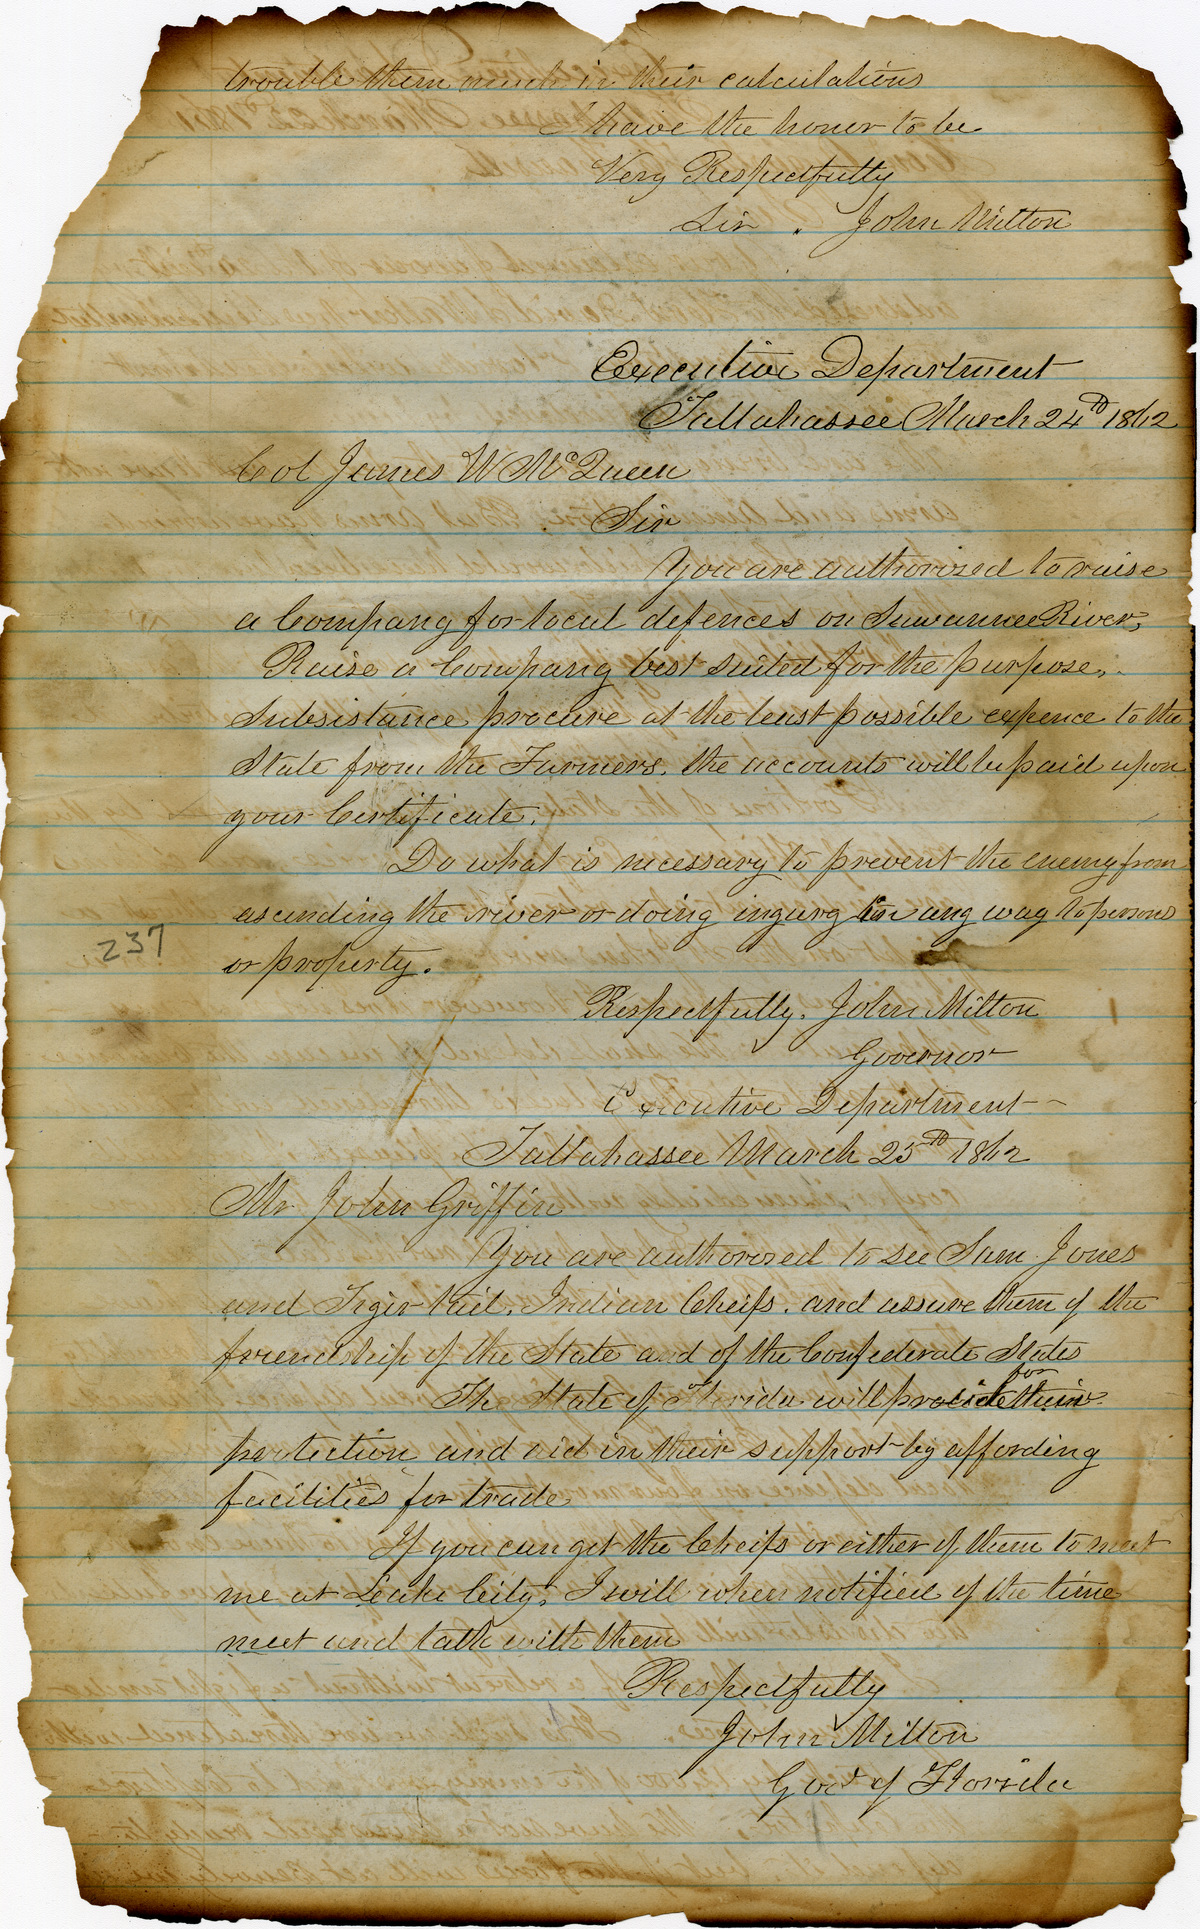 trouble them much in their calculations
I have the honor to be
Very Respectfully
Sir . John Milton
Executive Department
Tallahassee March 24th 1862
Col James W McQueen
Sir
You are authorized to raise
a Company for local defences on Suwannee River,
Raise a Company best suited for the purpose.
Subsistance procure at the least possible expence to the
State from the Farmers. the accounts will be paid upon
your Certificate.
Do what is necessary to prevent the enemy from
ascending the river or doing ingury in any way to persons
or property.
237
Respectfully. John Milton
Governor
Executive Department
Tallahassee March 25th 1862
Mr John Griffin
You are authorized to see Sam Jones
and Tiger tail. Indian Cheifs. and assure them of the
freendship of the State and of the Confederate States
for
The State of Florida will provide their
portection and aid in their support by affording
facilities for trade
If you can get the Cheifs or either of them to meet
me at Leake City, I will when notified of the time
meet and talk with them
Respectfully
John Milton
Govr of Florida